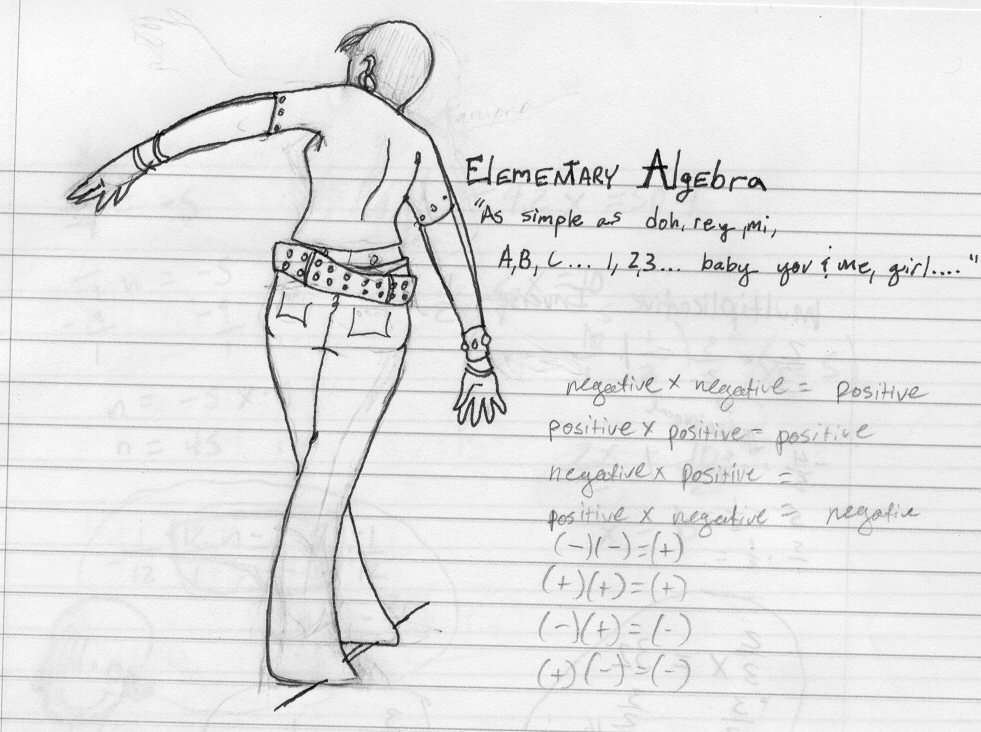 Elementary Algebra
"As simple as doh, rey, mi,
A, B, C... 1, 2, 3... baby you & me, girl...."
negative x negative = positive
positive x positive = positive
negative x positive =
positive x negative = negative
(-)(-)=(+)
(+)(+)=(+)
(-)(+)=(-)
(+)(-)=(-)